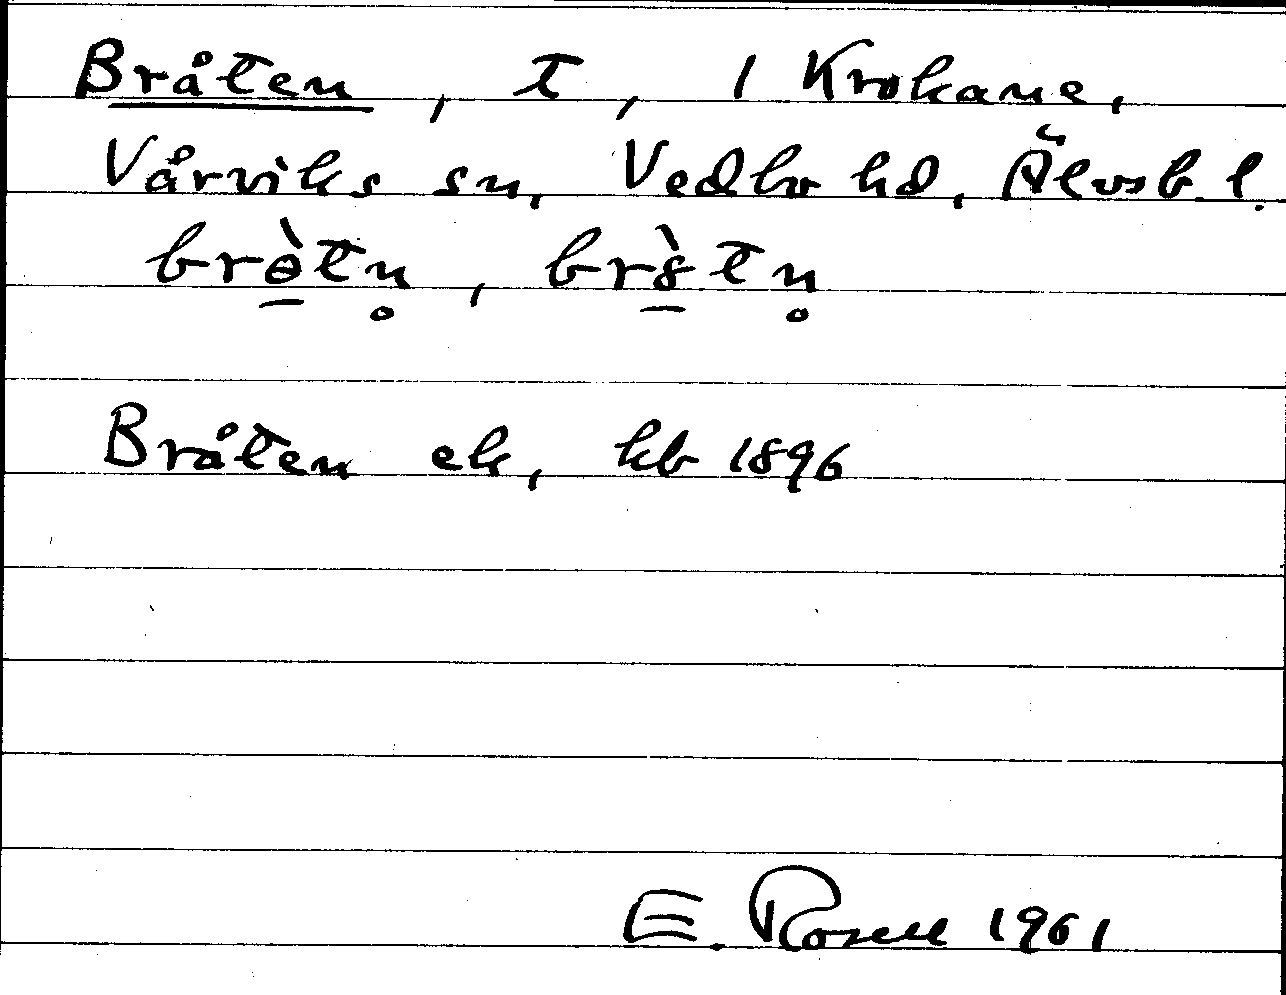 Bråten, t, 1 Krokane,
Vårviks sn, Vedbo hd, Älvsb. l.
brɵ̀tn̥, br8̀tn̥
Bråten ek, kb 1896
E. Rosell 1961